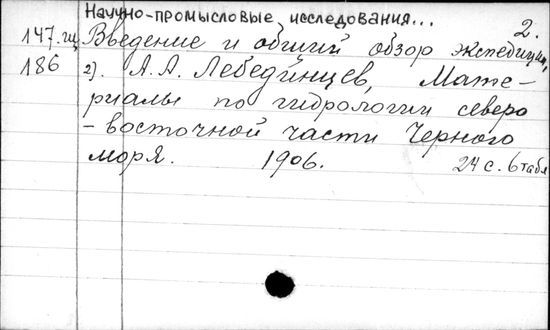 Научно-промысловые исследования...
2.
147.гц Введение и общий обзор экспедиции,
186 2). А.А. Лебединцев, Мате-
риалы по гидрологии северо
-восточной части Черного
моря. 1906. 24 с. 6 табл